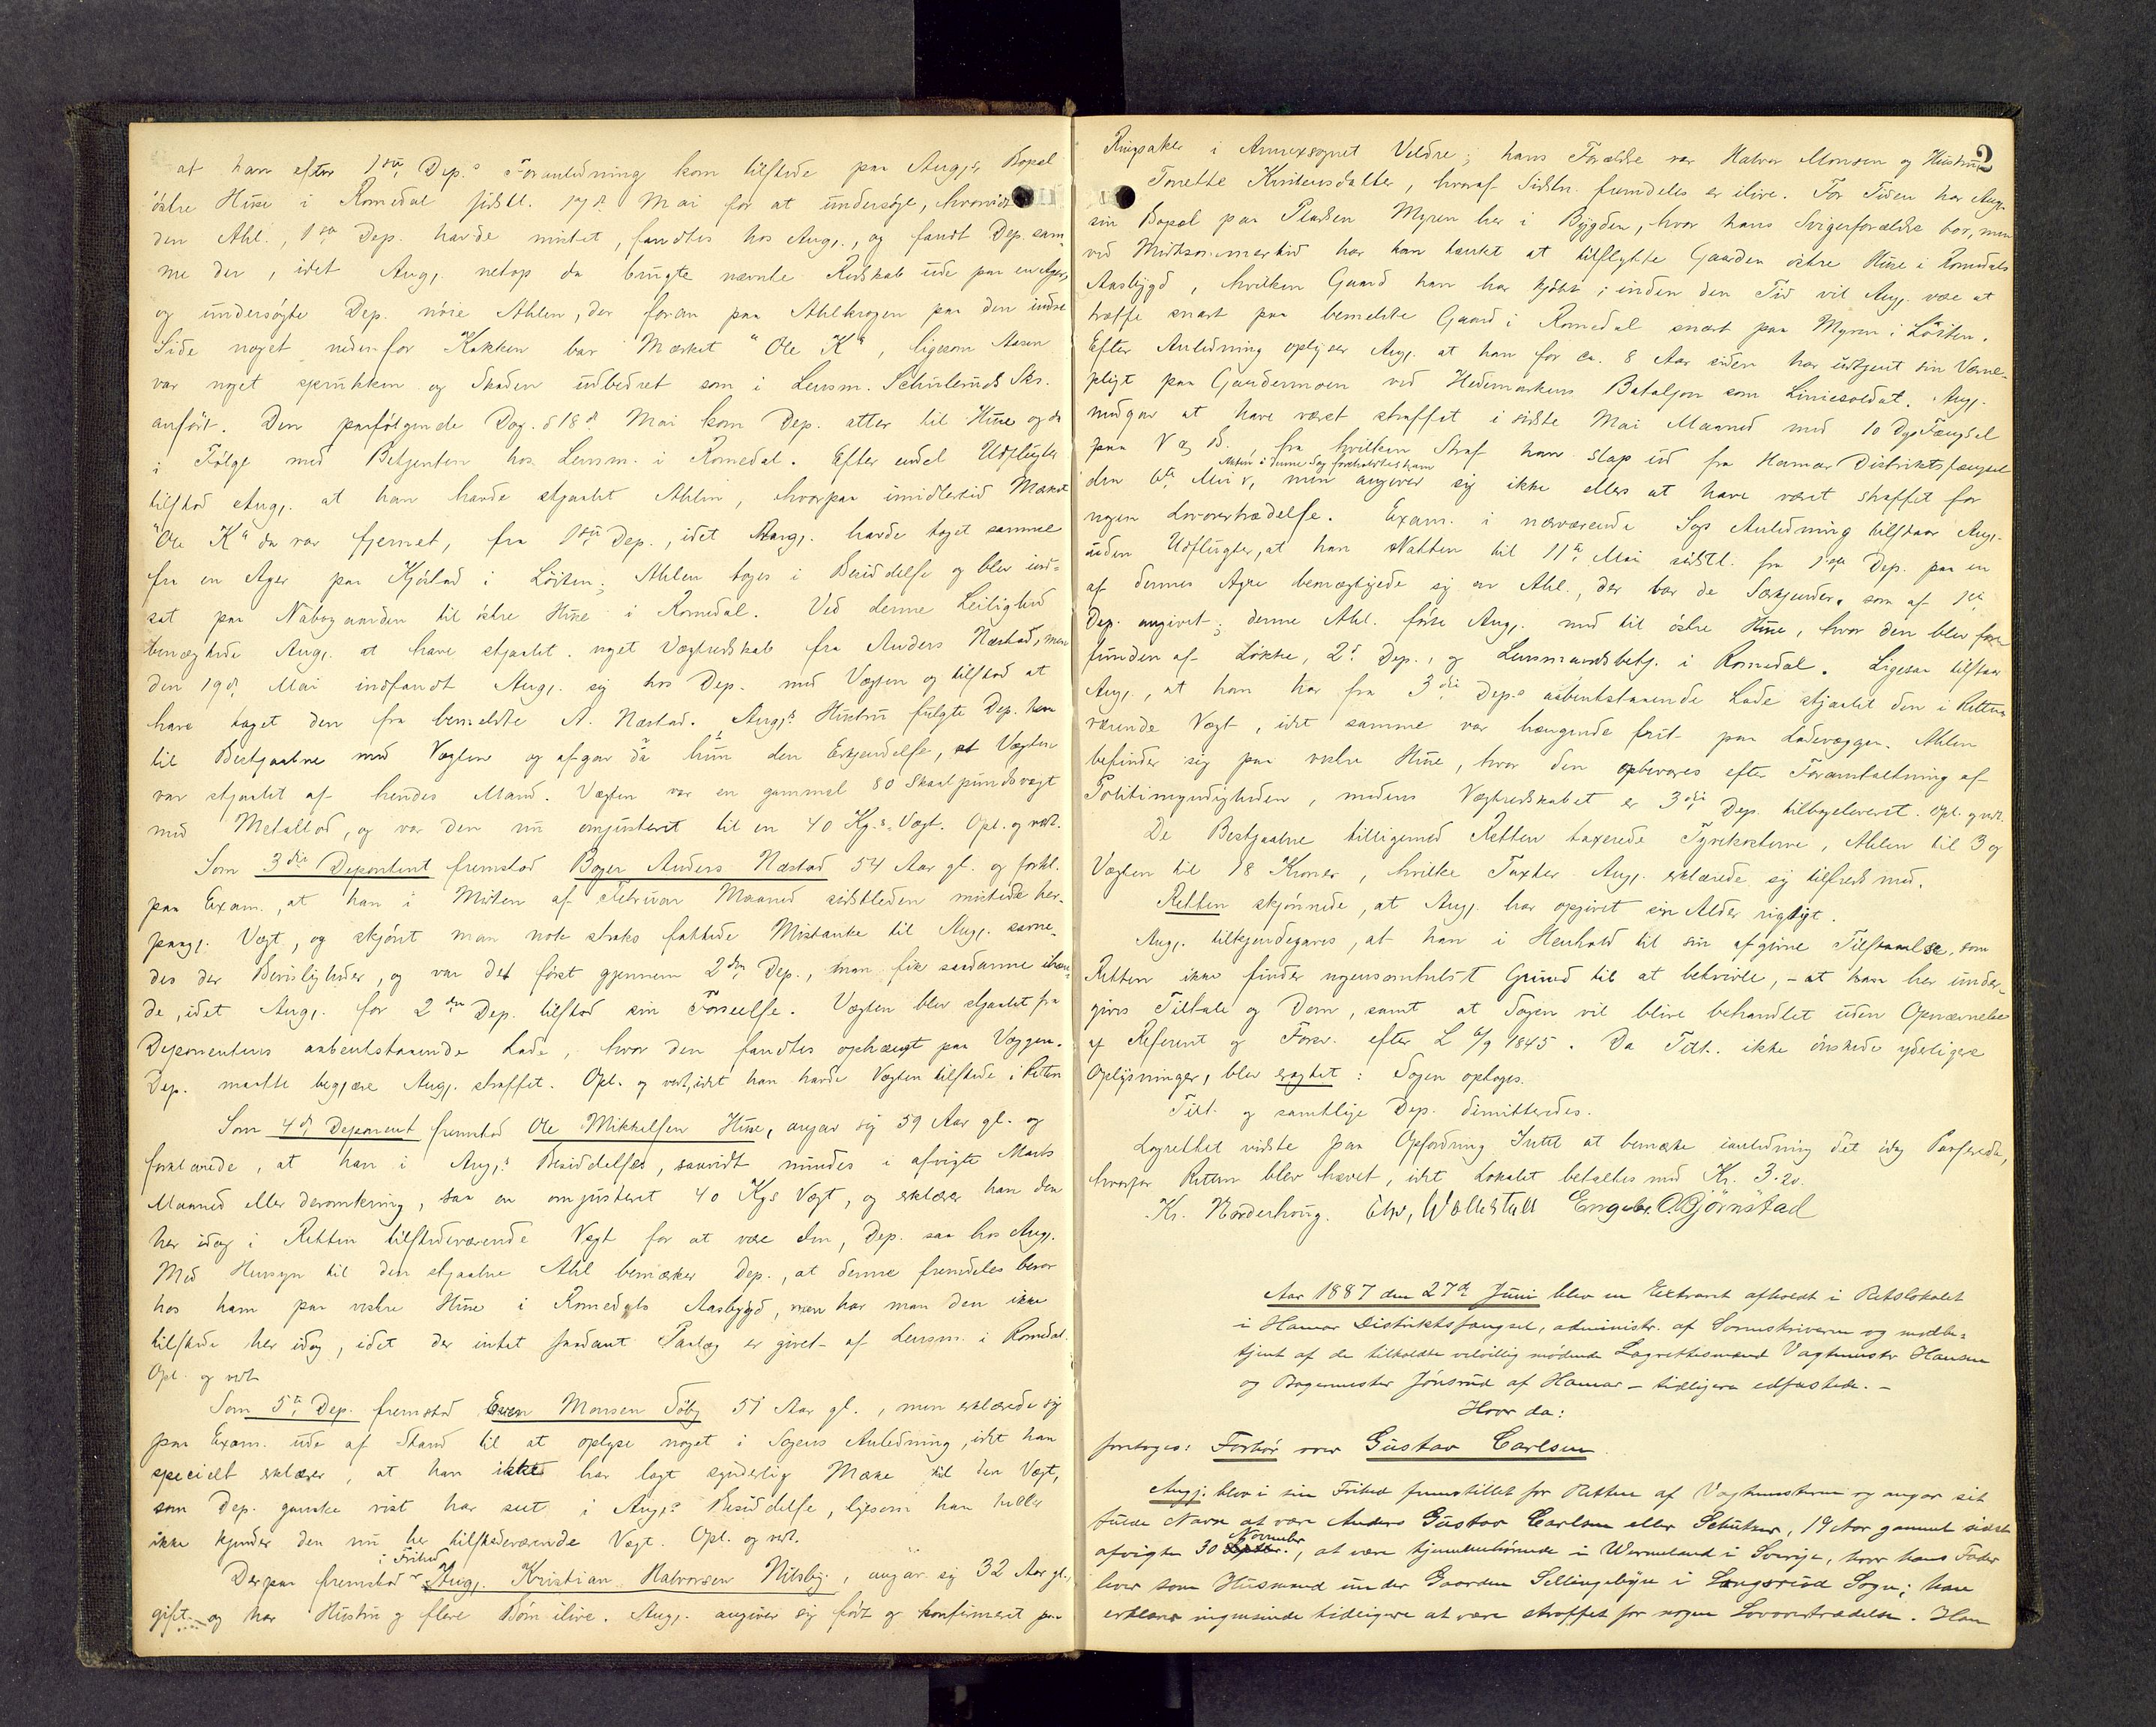 at han efter 1ste Dep.s Foranledning kom tilstede paa Angj.s Bopæl
östre Hune i Romedal sidstl. 17de Mai for at undersöge, hvorvidt
den Ahl., 1ste Dep. havde mistet, fandtes hos Angj., og fandt Dep. sam-
me der, idet Angj. netop da brugte nævnte Redskab ude paa en Ager,
og undersögte Dep. nöie Ahlen, der foran paa Ahlkrogen paa den indre
Side noget nedenfor Krokken bar Mærket "Ole K", ligesom Aasen
var noget sprukken og Skaden udbedret som i Lensm. Schuleruds Skr.
anfört. Den paafölgende Dag d 18de Mai kom Dep. atter til Hune og da
i Fölge med Betjenten hos Lensm. i Romedal. Efter endel Udflugter
tilstod Angj. at han havde stjaalet Ahlen, hvorpaa imidlertid Mærket
"Ole K" da var fjernet, fra 1ste Dep., idet Angj. havde taget samme
fra en Ager paa Kjörlad i Löiten; Ahlen toges i Besiddelse og blev ind-
sat paa Nabogaarden til östre Hune i Romedal. Ved denne Leilighed
benægtede Angj. at have stjaalet noget Vægtredskab fra Anders Næstad, men
den 19de Mai indfandt Angj. sig hos Dep. med Vægten og tilstod at
have taget den fra bemeldte A. Næstad. Angj.s Hustru fulgte Dep. hen
til Bestjaalne med Vægten og afgav da hun den Erkjendelse, at Vægten
var stjaalet af hendes Mand. Vægten var en gammel 80 Skaalpundsvægt
med Metallod, og var den nu omjusteret til en 40 Kg.s Vægt. Opl. og vedt.
Som 3die Deponent fremstod Böyer Anders Næstad 54 Aar gl. og forkl.
paa Exam., at han i Midten af Februar Maaned sidstleden mistede her-
paagj. Vægt, og skjönt man nok straks fattede Mistanke til Angj. savne-
des der Bevisligheder, og var det först gjennem 2den Dep., man fik saadanne ihæn-
de, idet Angj. for 2den Dep. tilstod sin Forseelse. Vægten blev stjaalet fra
Deponentens aabentstaaende Lade, hvor den fandtes ophængt paa Væggen.
Dep. maatte begjære Angj. straffet. Opl. og vedt, idet han havde Vægten tilstede i Retten
Som 4de Deponent fremstod Ole Mikkelsen Hune, angav sig 59 Aar gl. og
forklarede, at han i Angj.s Besiddelse, saavidt mindes i afvigte Marts
Maaned eller deromkring, saa en omjusteret 40 Kgs Vægt, og erklærer han den
her idag i Retten tilstedeværende Vægt for at være den, Dep. saa hos Angj.
Med Hensyn til den stjaalne Ahl bemærker Dep., at denne fremdeles beror
hos ham paa vestre Hune i Romedals Aasbygd, men har man den ikke
tilstede her idag, idet der intet saadant Paalæg er givet af Lensm. i Romedal.
Opl. og vedt
Som 5te Dep. fremstod Even Monsen Söby 51 Aar gl., men erklærede sig
paa Exam. ude af Stand til at oplyse noget i Sagens Anledning, idet han
specielt erklærer, at han ikke har lagt synderlig Mærke til den Vægt,
som Dep. ganske vist har seet i Angj.s Besiddelse, ligesom han heller
ikke kjender den nu her tilstedeværende Vægt. Opl. og vedt.
i Frihed
Derpaa fremstod Angj. Kristian Halvorsen Nilsby, angav sig 32 Aar gl.,
gift og har Hustru og flere Börn ilive. Angj. angiver sig födt og konfirmeret paa
2
Ringsaker i Annexsognet Veldre; hans Forældre var Halvor Monsen og Hustru
Tonette Kristensdatter, hvoraf Sidstn. fremdeles er ilive. For Tiden har Angj.
sin Bopæl paa Pladsen Myren her i Bygden, hvor hans Svigerforældre bor, men
ved Midtsommertid har han tænkt at tilflytte Gaarden östre Hune i Romedals
Aasbygd, hvilken Gaard han har kjöbt; inden den Tid vil Angj. være at
træffe snart paa bemeldte Gaard i Romedal snart paa Myren i Löiten.
Efter Anledning oplyser Angj. at han for ca. 8 Aar siden har udtjent sin Værne-
pligt paa Gardermoen ved Hedemarkens Bataljon som Liniesoldat. Angj.
medgav at have været straffet i sidste Mai Maaned med 10 Dgs Fængsel
paa V og B. fra hvilken Straf han slap ud fra Hamar Distriktsfængsel
Akten i denne Sag foreholdtes ham
den 6te Mai, men angiver sig ikke ellers at have været straffet for
nogen Lovovertrædelse. Exam. i nærværende Sags Anledning tilstaar Angj.
uden Udflugter, at han Natten til 11te Mai sidstl. fra 1ste Dep. paa en
af dennes Agre bemægtigede sig en Ahl., der bar de Særkjender, som af 1ste
Dep. angivet; denne Ahl. förte Angj. med til östre Hune, hvor den blev fore-
funden af Lökke, 2det Dep., og Lensmandsbetj. i Romedal. Ligesaa tilstaar
Angj., at han har fra 3die Dep.s aabentstaaende Lade stjaalet den i Retten
værende Vægt, idet samme var hængende frit paa Ladevæggen. Ahlen
befinder sig paa vestre Hune, hvor den opbevares efter Foranstaltning af
Politimyndigheden, medens Vægtredskabet er 3die Dep. tilbageleveret. Opl. og vedt.
De Bestjaalne tilligemed Retten taxerede Tyvekosterne, Ahlen til 3 og
Vægten til 18 Kroner, hvilke Taxter Angj. erklærede sig tilfreds med.
Retten skjönnede, at Angj. har opgivet sin Alder rigtigt.
Angj. tilkjendegaves, at han i Henhold til sin afgivne Tilstaaelse, som
Retten ikke finder nogensomhelst Grund til at betvivle, - at han her under-
gives Tiltale og Dom, samt at Sagen vil blive behandlet uden Opnævnelse
af Referent og Forsv. efter L 6/9 1845. Da Tilt. ikke önskede yderligere
Oplysninger, blev eragtet: Sagen optages.
Tilt. og samtlige Dep. dimitteredes.
Lagrettet vidste paa Opfordring Intet at bemærke ianledning det idag Passerede,
hvorfor Retten blev hævet, idet Lokalet betaltes med Kr. 3.20.
Kr. Norderhoug. Ehr, Wollestad Engebr. O Bjørnstad
Aar 1887 den 27de Juni blev en Extraret afholdt i Retslokalet
i Hamar Distriktsfængsel, administr. af Sorenskriveren og medbe-
tjent af de tilkaldte velvillig mødende Lagrettesmænd Vagtmester Hansen
og Bagermester Jönsrud af Hamar - tidligere edfæstede. -
Hvor da:
foretoges: Forhör over Gustav Carlsen.
Angj. blev i sin Frihed fremstillet for Retten af Vagtmesteren og angav sit
fulde Navn at være Anders Gustav Carlsen eller Schützer, 19 Aar gammel sidst
November
afvigte 30 Septbr., at være hjemmehörende i Wermeland i Sverige, hvor hans Fader
lever som Husmand under Gaarden i Sogn; han
erklærer ingensinde tidligere at være straffet for nogen Lovovertrædelse. Han